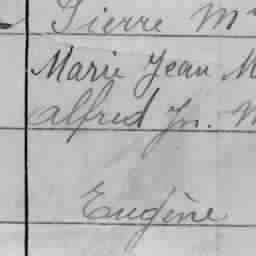 Pierre M
Marie Jean M
Alfred Jn. M
Eugène